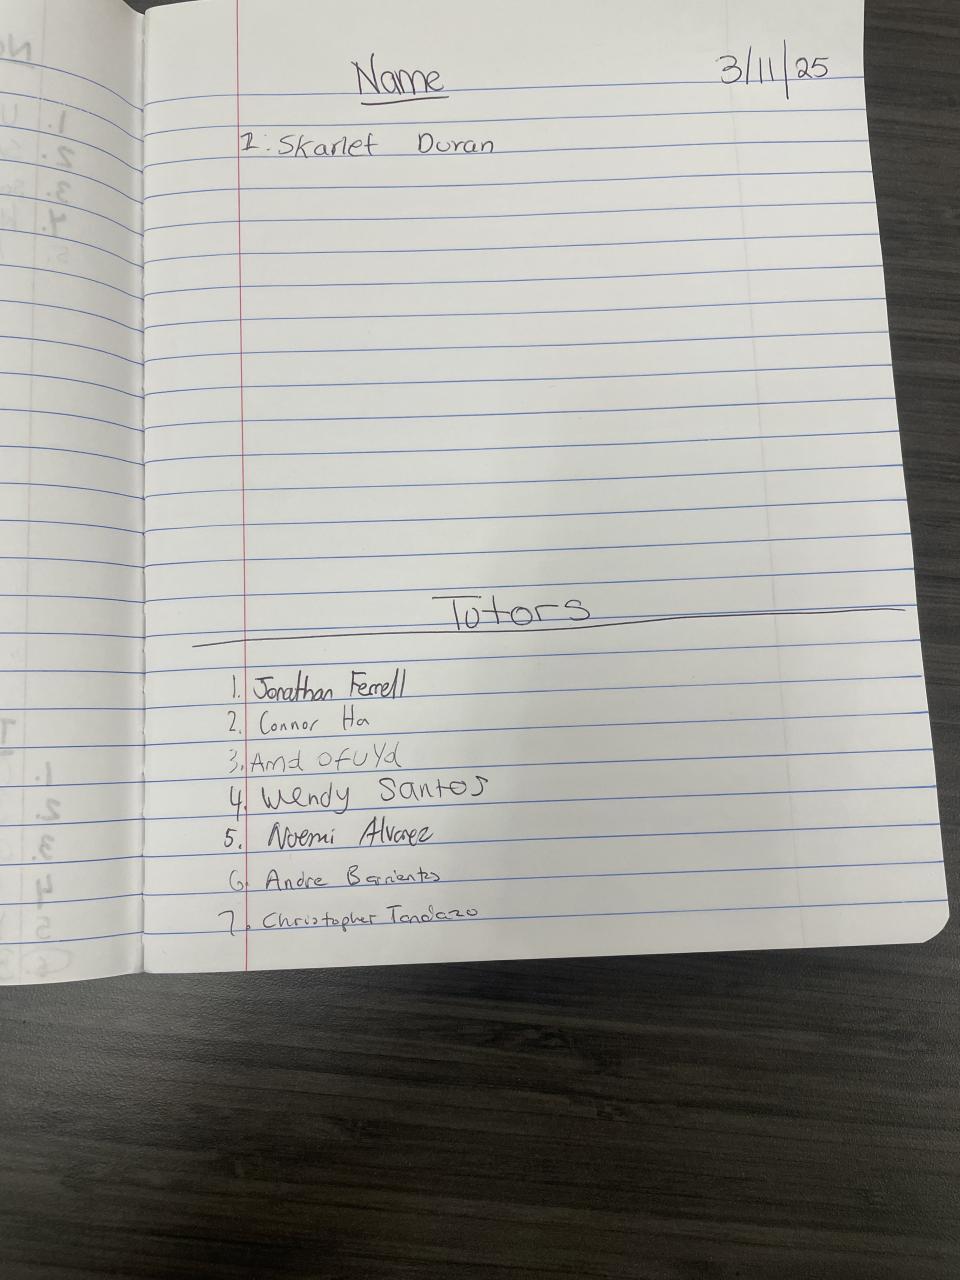 Name 3/11/25
1. Skarlet Duran
Tutors
1. Jonathan Ferrell
2. Connor Ha
3. Amd Ofuyd
4. Wendy Santos
5. Noemi Alvarez
6. Andre Barrientos
7. Christopher Tandazo